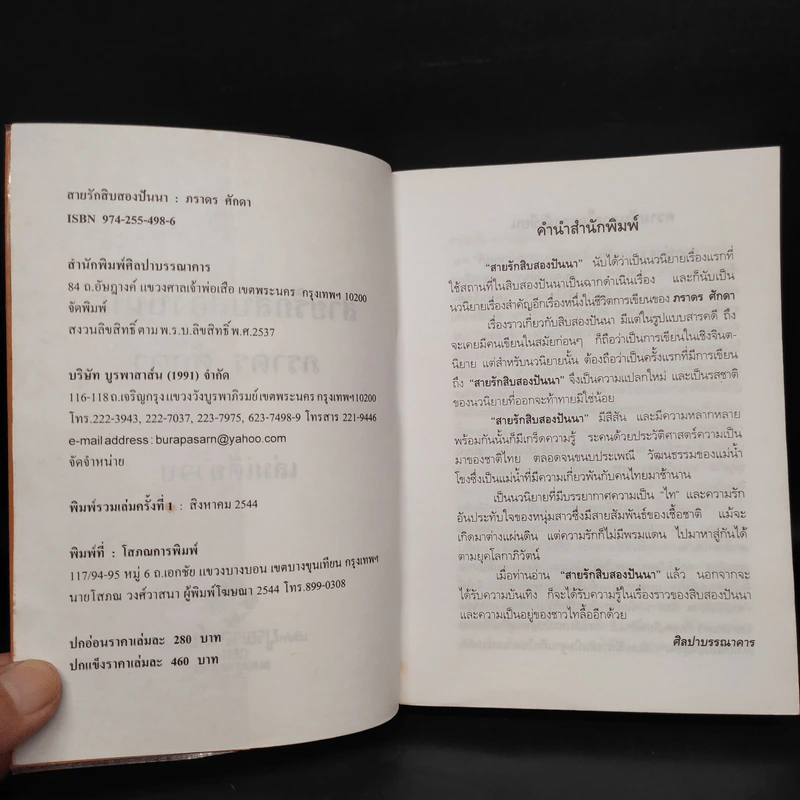 สายรักสิบสองปันนา : ภราดร ศักดา
ISBN 974-255-498-6
สำนักพิมพ์ศิลปาบรรณาคาร
84 ถ.อัษฎางค์ แขวงศาลเจ้าพ่อเสือ เขตพระนคร กรุงเทพฯ 10200
จัดพิมพ์
สงวนลิขสิทธิ์ตาม พ.ร.บ.ลิขสิทธิ์ พ.ศ.2537
บริษัท บูรพาสาส์น (1991) จำกัด
116-118 ถ.เจริญกรุง แขวงวังบูรพาภิรมย์ เขตพระนคร กรุงเทพฯ10200
โทร.222-3943, 222-7037, 223-7975, 623-7498-9 โทรสาร 221-9446
e-mail address : burapasarn@yahoo.com
จัดจำหน่าย
พิมพ์รวมเล่มครั้งที่ 1 : สิงหาคม 2544
พิมพ์ที่ : โสภณการพิมพ์
117/94-95 หมู่ 6 ถ.เอกชัย แขวงบางบอน เขตบางขุนเทียน กรุงเทพฯ
นายโสภณ วงศ์วาสนา ผู้พิมพ์โฆษณา 2544 โทร.899-0308
ปกอ่อนราคาเล่มละ 280 บาท
ปกแข็งราคาเล่มละ 460 บาท
คำนำสำนักพิมพ์
"สายรักสิบสองปันนา" นับได้ว่าเป็นนวนิยายเรื่องแรกที่
ใช้สถานที่ในสิบสองปันนาเป็นฉากดำเนินเรื่อง และก็นับเป็น
นวนิยายเรื่องสำคัญอีกเรื่องหนึ่งในชีวิตการเขียนของ ภราดร ศักดา
เรื่องราวเกี่ยวกับสิบสองปันนา มีแต่ในรูปแบบสารคดี ถึง
จะเคยมีคนเขียนในสมัยก่อนๆ ก็ถือว่าเป็นการเขียนในเชิงจินต-
นิยาย แต่สำหรับนวนิยายนั้น ต้องถือว่าเป็นครั้งแรกที่มีการเขียน
ถึง "สายรักสิบสองปันนา" จึงเป็นความแปลกใหม่ และเป็นรสชาติ
ของนวนิยายที่ออกจะท้าทายมิใช่น้อย
"สายรักสิบสองปันนา" มีสีสัน และมีความหลากหลาย
พร้อมกันนั้นก็มีเกร็ดความรู้ ระคนด้วยประวัติศาสตร์ความเป็น
มาของชาติไทย ตลอดจนขนบประเพณี วัฒนธรรมของแม่น้ำ
โขงซึ่งเป็นแม่น้ำที่มีความเกี่ยวพันกับคนไทยมาช้านาน
เป็นนวนิยายที่มีบรรยากาศความเป็น "ไท" และความรัก
อันประทับใจของหนุ่มสาวซึ่งมีสายสัมพันธ์ของเชื้อชาติ แม้จะ
เกิดมาต่างแผ่นดิน แต่ความรักก็ไม่มีพรมแดน ไปมาหาสู่กันได้
ตามยุคโลกาภิวัตน์
เมื่อท่านอ่าน "สายรักสิบสองปันนา" แล้ว นอกจากจะ
ได้รับความบันเทิง ก็จะได้รับความรู้ในเรื่องราวของสิบสองปันนา
และความเป็นอยู่ของชาวไทลื้ออีกด้วย
ศิลปาบรรณาคาร